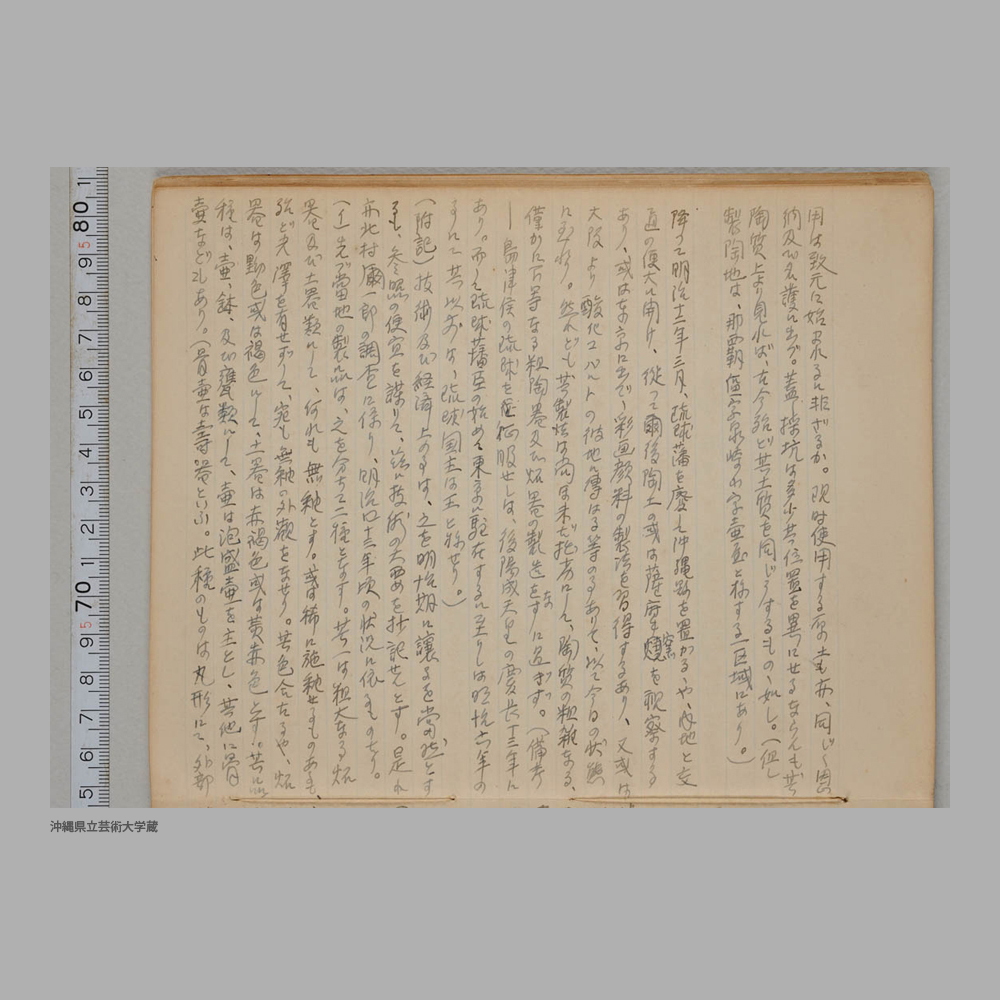 用は敦元に始まれるに非ざるか。現時使用する原土も亦、同じく恩
納及び名護に出づ。蓋し採坑は多少其位置を異にせるならんも其
陶質上より見れば、古今殆ど其土質を同じうするものゝ如し。(但し
製陶地は、那覇区字泉崎の小字壺屋と称する一区域にあり。)
降つて明治十二年三月、琉球藩を廃し沖縄県を置かるゝや、内地と交
通の便大に開け、従つて爾後陶工の或は薩府窯を視察する
あり、或は東京に出で、彩画顔料の製法を習得するあり、又或は
大阪より酸化コバルトの彼地に傳はる等のことありて、以て今日の状態
に至れり。然れども其製法は尚ほ未だ拙劣にして、陶質の粗鬆なる、
僅かに下等なる粗陶器及び炻器の製造をなすに過ぎず。(備考
ー島津侯の琉球を征服せしは、後陽成天皇の慶長十三年に
あり。而して琉球藩王の始めて東京に駐在するに至りしは明治六年の
ことにて其以前は、琉球国主は王と称せり。)
(附記)技術及び経済上のことは、之を明治期に譲るを当然とす
るも、参照の便宜を謀りて、茲に技術の大要を抄記せんとす。是れ
亦北村彌一郎の調査に係り、明治四十三年頃の状況に依るものなり。
(イ)先づ當地の製品は、之を分ちて二種となす。其一は粗大なる炻
器及び土器類にして、何れも無釉とす。或は稀に施釉せるものあるも
殆ど光澤を有せずして、宛も無釉の外観をなせり。其色合たるや、炻
器は黝色或は褐色にして、土器は赤褐色或は黄赤色とす。其品
種は、壷、鉢、及び甕類にして、壷は泡盛壷を主とし、其他に骨
壷などもあり。(骨壷は壽器といふ。此種のものは丸形にて、外部
80 1
9 5 8 7 6 5 4 3 2 1
70
9 5 8 7 6 5
沖縄県立芸術大学蔵